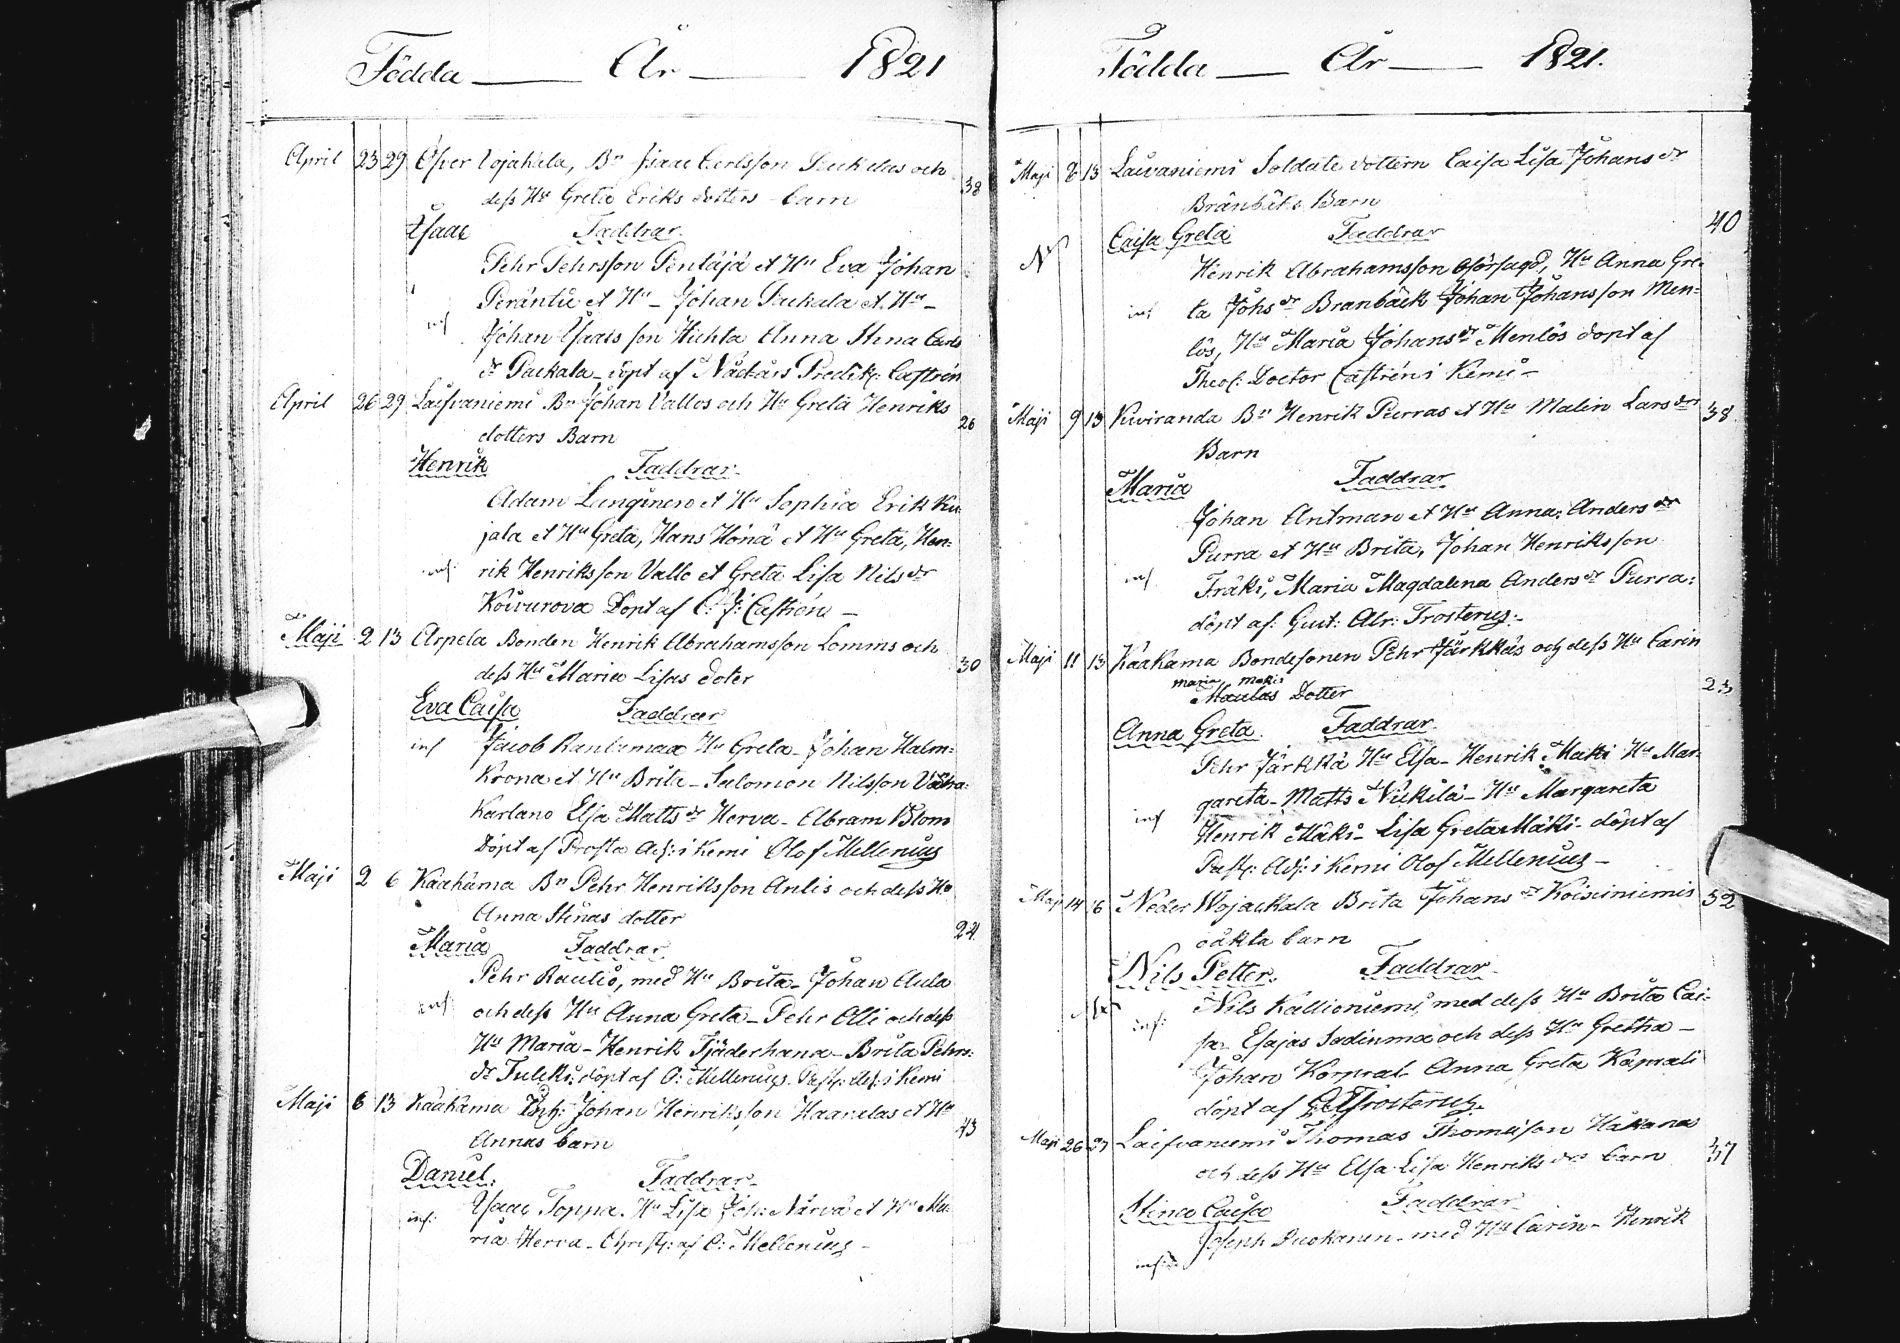 Födda — År — 1821
April 23 29 Öfver Vojakala, Bn Isaac Carlsson och
38
dess Hu Greta Eriks dotters barn
Isaac Faddrar
Pehr Pehrsson Pentäjä et Hu Eva Johan
Peräntie et Hu – Johan Packala et Hu –
inf Johan Isaacs son Hichta Anna Stina Carls
dr Packala – döpt af Nådårs Predik: Castrén
April 26 29 Laifvaniemi Bn Johan Vallos och Hu Greta Henriks
26
dotters Barn
Henrik Faddrar
Adam Lunginen et Hu Sophia Erik Ku
jala et Hu Greta, Hans Hönä et Hu Greta, Hen:
inf: rik Henriksson Vallo et Greta Lisa Nils dr
Koivurova Döpt af C: J: Castrén –
Maji 2 13 Arpela Bonden Henrik Abrahamsson Lomms och
30
dess Hu Maria Lisas doter
Eva Caisa Faddrar
inf Jacob Rantamaa Hu Greta – Johan Halm:
Krona et Hu Brita – Salomon Nilsson
Karlano Elsa Matts dr Herva – Abram Blom
Döpt af Prosta Adj: i Kemi Olof Mellenius
Maji 2 6 Kaakama Bn Pehr Henriksson Anlis och dess Hu
Anna Stinas dotter
24
Maria Faddrar
Pehr Rautio, med Hu Brita – Johan Aula
inf och dess Hu Anna Greta – Pehr Olli och dess
Hu Maria – Henrik Tjäderhana – Brita Pehrs:
dr döpt af O: Mellenius Past: Adj: i Kemi
Maji 6 13 Kaakama Inh: Johan Henriksson Haanelas et Hu
43
Annas barn
Daniel: Faddrar –
inf: Isaac Toppa Hu Lisa Joh: Närvä et Hu Ma
ria Herva – Christ: af O: Mellenius –
Födda — År — 1821.
Maji 8 13 Laivaniemi Soldate dottern Caisa Lisa Johans dr
Bränbäks Barn
40
Caisa Greta Faddrar
N Henrik Abrahamsson Oförsagd, Hu Anna Gre:
inf ta Johs dr Branbäck Johan Johansson Men:
lös, Hu Maria Johans dr Menlös döpt af
Theol: Doctor Castrén i Kemi –
Maji 9 13 Kuiranda Bn Henrik Purras et Hu Malin Lars dr
38
Barn
Maria Faddrar
Johan Antman et Hu Anna: Anders dr
Purra et Hu Brita, Johan Henriksson
inf Fräki, Maria Magdalena Anders dr Purra:
döpt af: Gust: Abr: Frosterus:–
Maji 11 13 Kaakama Bondesonen Pehr Järkkäs och dess Hu Carin
maria maki
Maulas Dotter
23
Anna Greta Faddrar
Pehr Järkkä Hu Elsa – Henrik Maki Hu Mar:
gareta – Matts Nickilä – Hu Margareta
inf Henrik Mäki – Lisa Greta Mäki – döpt af
Past: Adj: i Kemi Olof Mellenius –
Maji 14 16 Neder Wojackala Brita Johans dr Koiviniemis
32
oäkta barn
Nils Petter. Faddrar –
inf: Nils Kallioniemi, med dess Hu Brita Cai:
sa – Esajas Sadinma och dess Hu Gretha –
Johan Korpral Anna Greta Kaprali
döpt af G: A: Frosterus.
Maji 26 27 Laifvaniemi Thomas Thomasson Hakana
och dess Hu Elsa Lisa Henriks dr barn
37
Stina Caisa Faddrar
Joseph Suokanen – med Hu Carin – Henrik
inf: